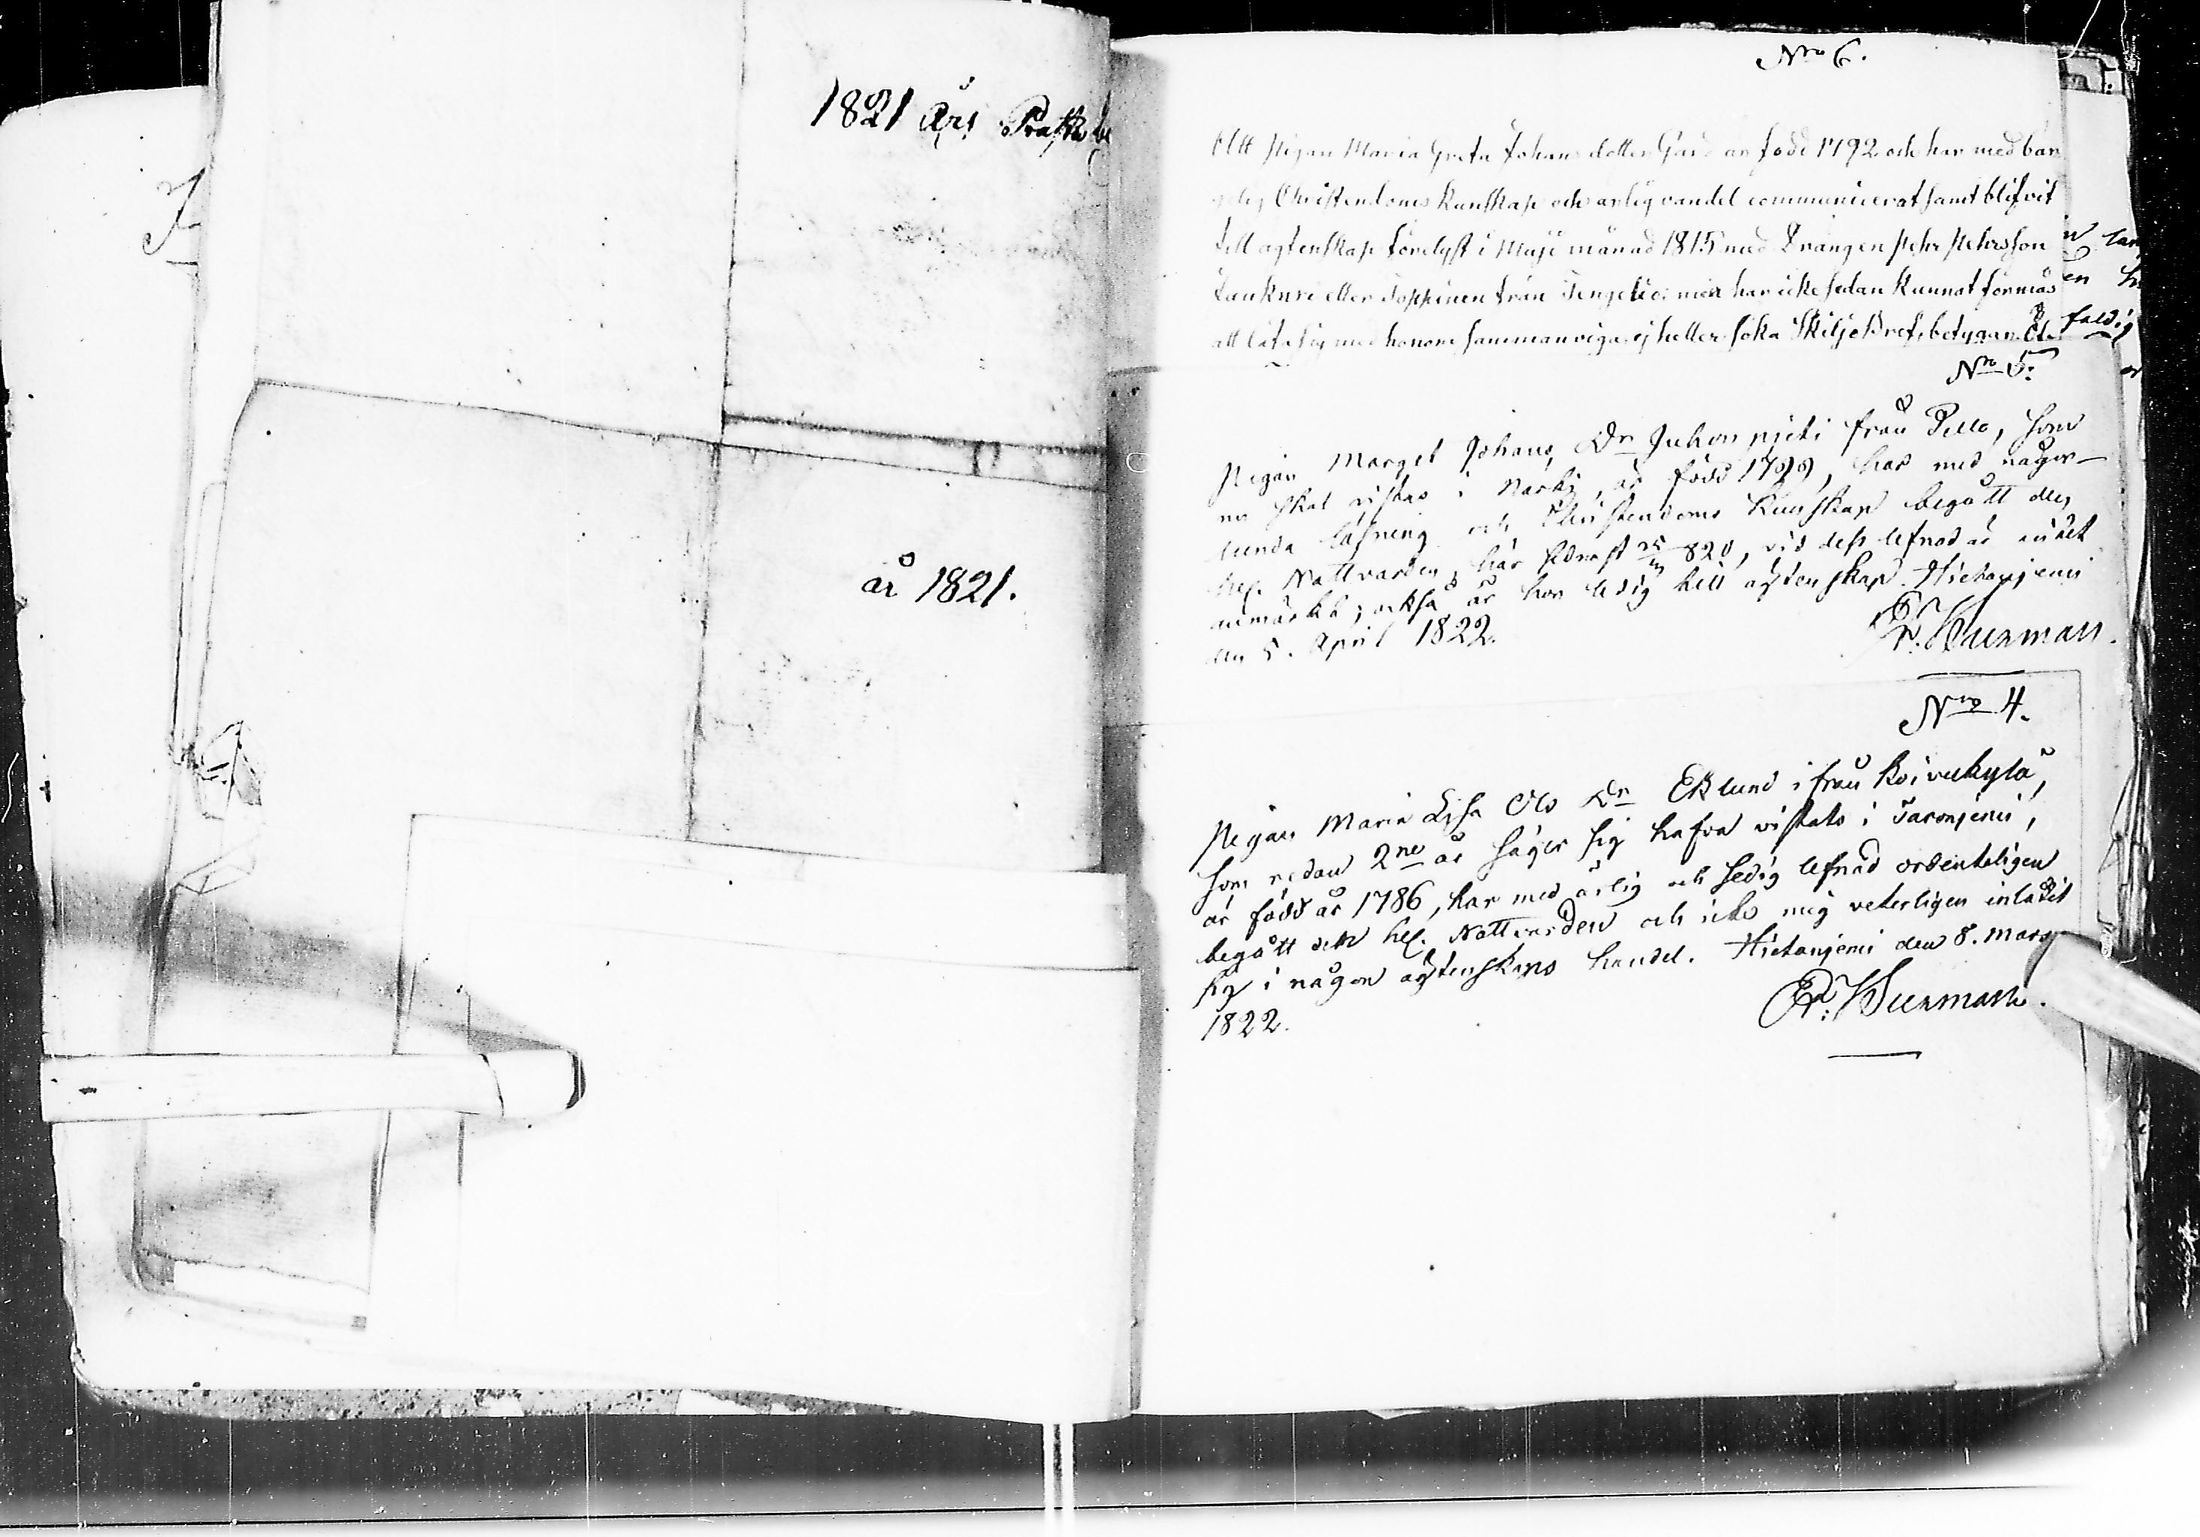 1821 års
år 1821.
Nro 6.
Att Pigan Maria Greta Johans dotter är född 1792 och har med bär
gelig Christendoms kunskap och ärlig vandel communicerat samt blifvit
till ägtenskap förelyst i Maji månad 1815 med Drängen Pehr Pehrsson
eller från men har icke sedan kunnat förmås
att låta sig med honom sammanviga ej heller söka Skiljobref, betygar.
faldig
Nro 5.
Pigan Marget Johans Dr Juhonpjeti från Pello, som
nu skal vistas i Narki, är född 1799, har med någor-
lunda läsning och Christendoms kunskap begått den
hel. Nattvarden här sednast 820, vid dess lefnad är intet
anmärkt; också är hon ledig till ägtenskap. Hietaniemi
den 5. April 1822.
Nro 4.
Pigan Maria Lisa Ols Dr Eklund ifrån Koivukylä,
som redan 2ne år säger sig hafva vistats i
är född år 1786, har med ärlig och sedig lefnad ordenteligen
begått den hel. Nattvarden och icke mig veterligen inlåtit
sig i någon ägtenskaps handel. Hietaniemi den 8. Mars
1822.